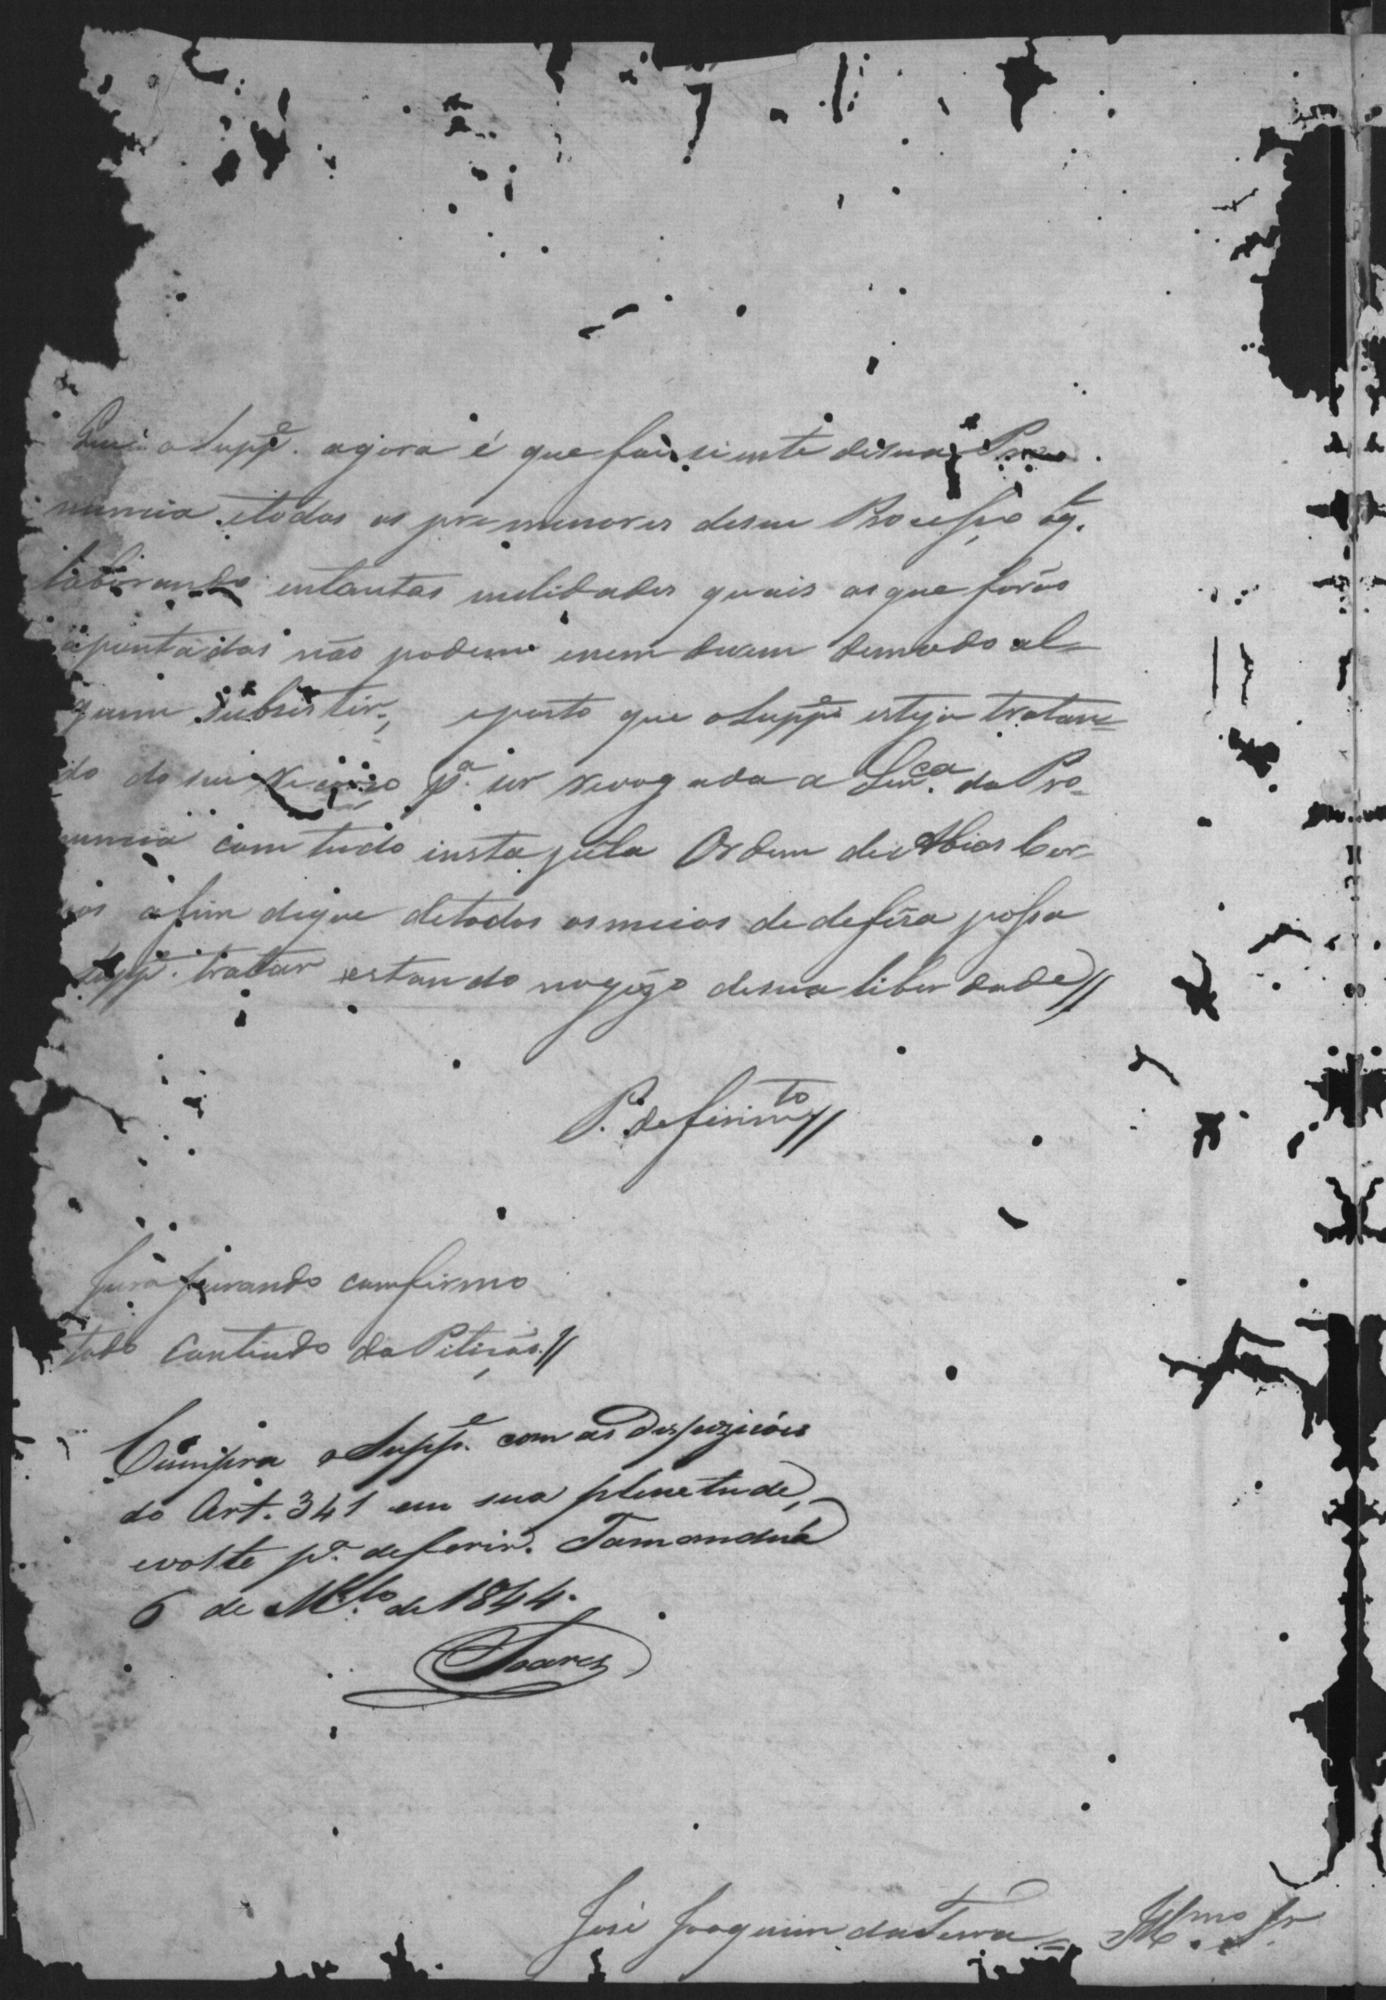 o Suppe. agora é que foi siente desua Pro
nuncia, etodos os premenores deseu Processo q.
laborando entantas nulidades quais as que forão
apontadas não podem enem devem demodo al=
gum Subsistir, eposto que o Suppe esteja tratan=
do do seu Recurso pa. ser revogada a Senca. da Pro=
nuncia com tudo insta pela Ordem de Abias Cor=
pos afim deque detodos os meios de defeza possa
Suppe. tratar estando nogozo desua liberdade//
P. deferimto//
Jura jurando comfirmo
todo contiudo da Petição//
Cumpra o Suppe. com as Dispozições
do Art. 341 em sua plenetude,
evolte pa. deferir. Tamanduá
6 de Mto. de 1844.
Soares
José Joaquim da Terra = Illmo. Sr.